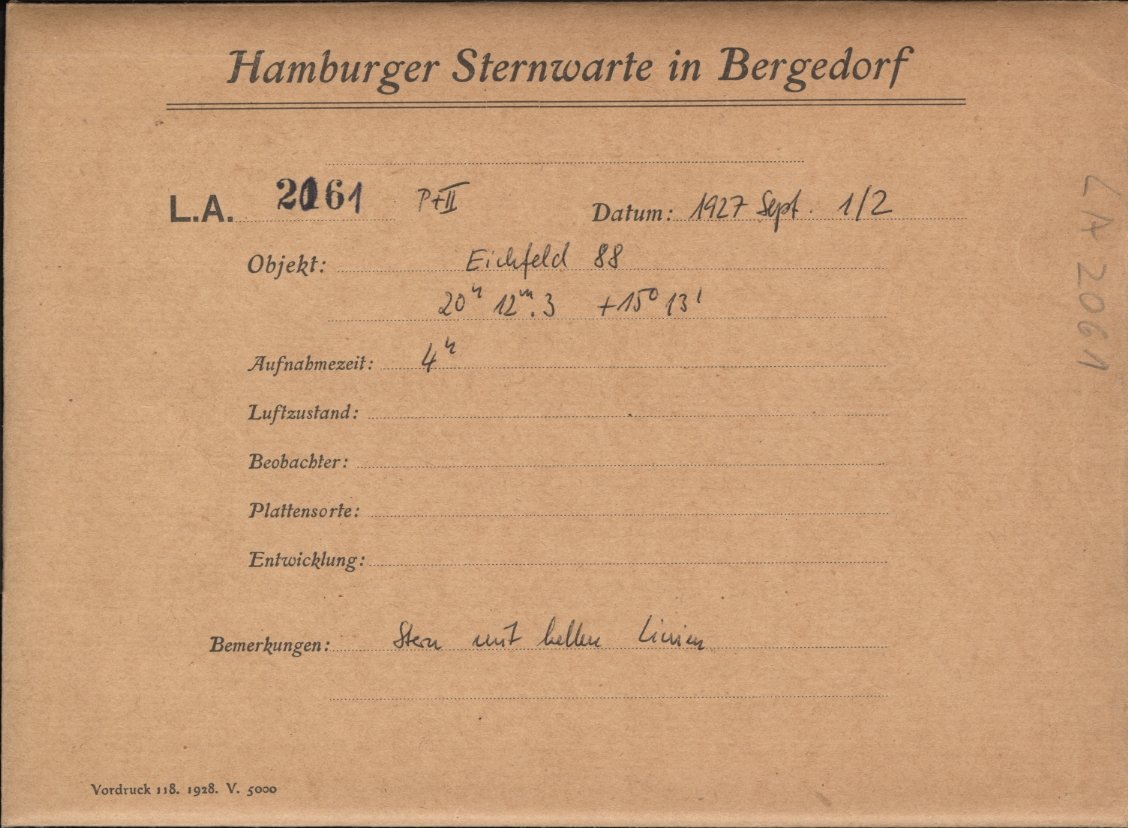 Hamburger Sternwarte in Bergedorf
L.A. 2061 P+II Datum: 1927 Sept. 1/2
Objekt: Eichfeld 88
20ʰ 12ᵐ.3 +15° 13'
Aufnahmezeit: 4ʰ
Luftzustand:
Beobachter:
Plattensorte:
Entwicklung:
Bemerkungen: Stern mit hellen Linien
Vordruck 118. 1928. V. 5000
LA 2061